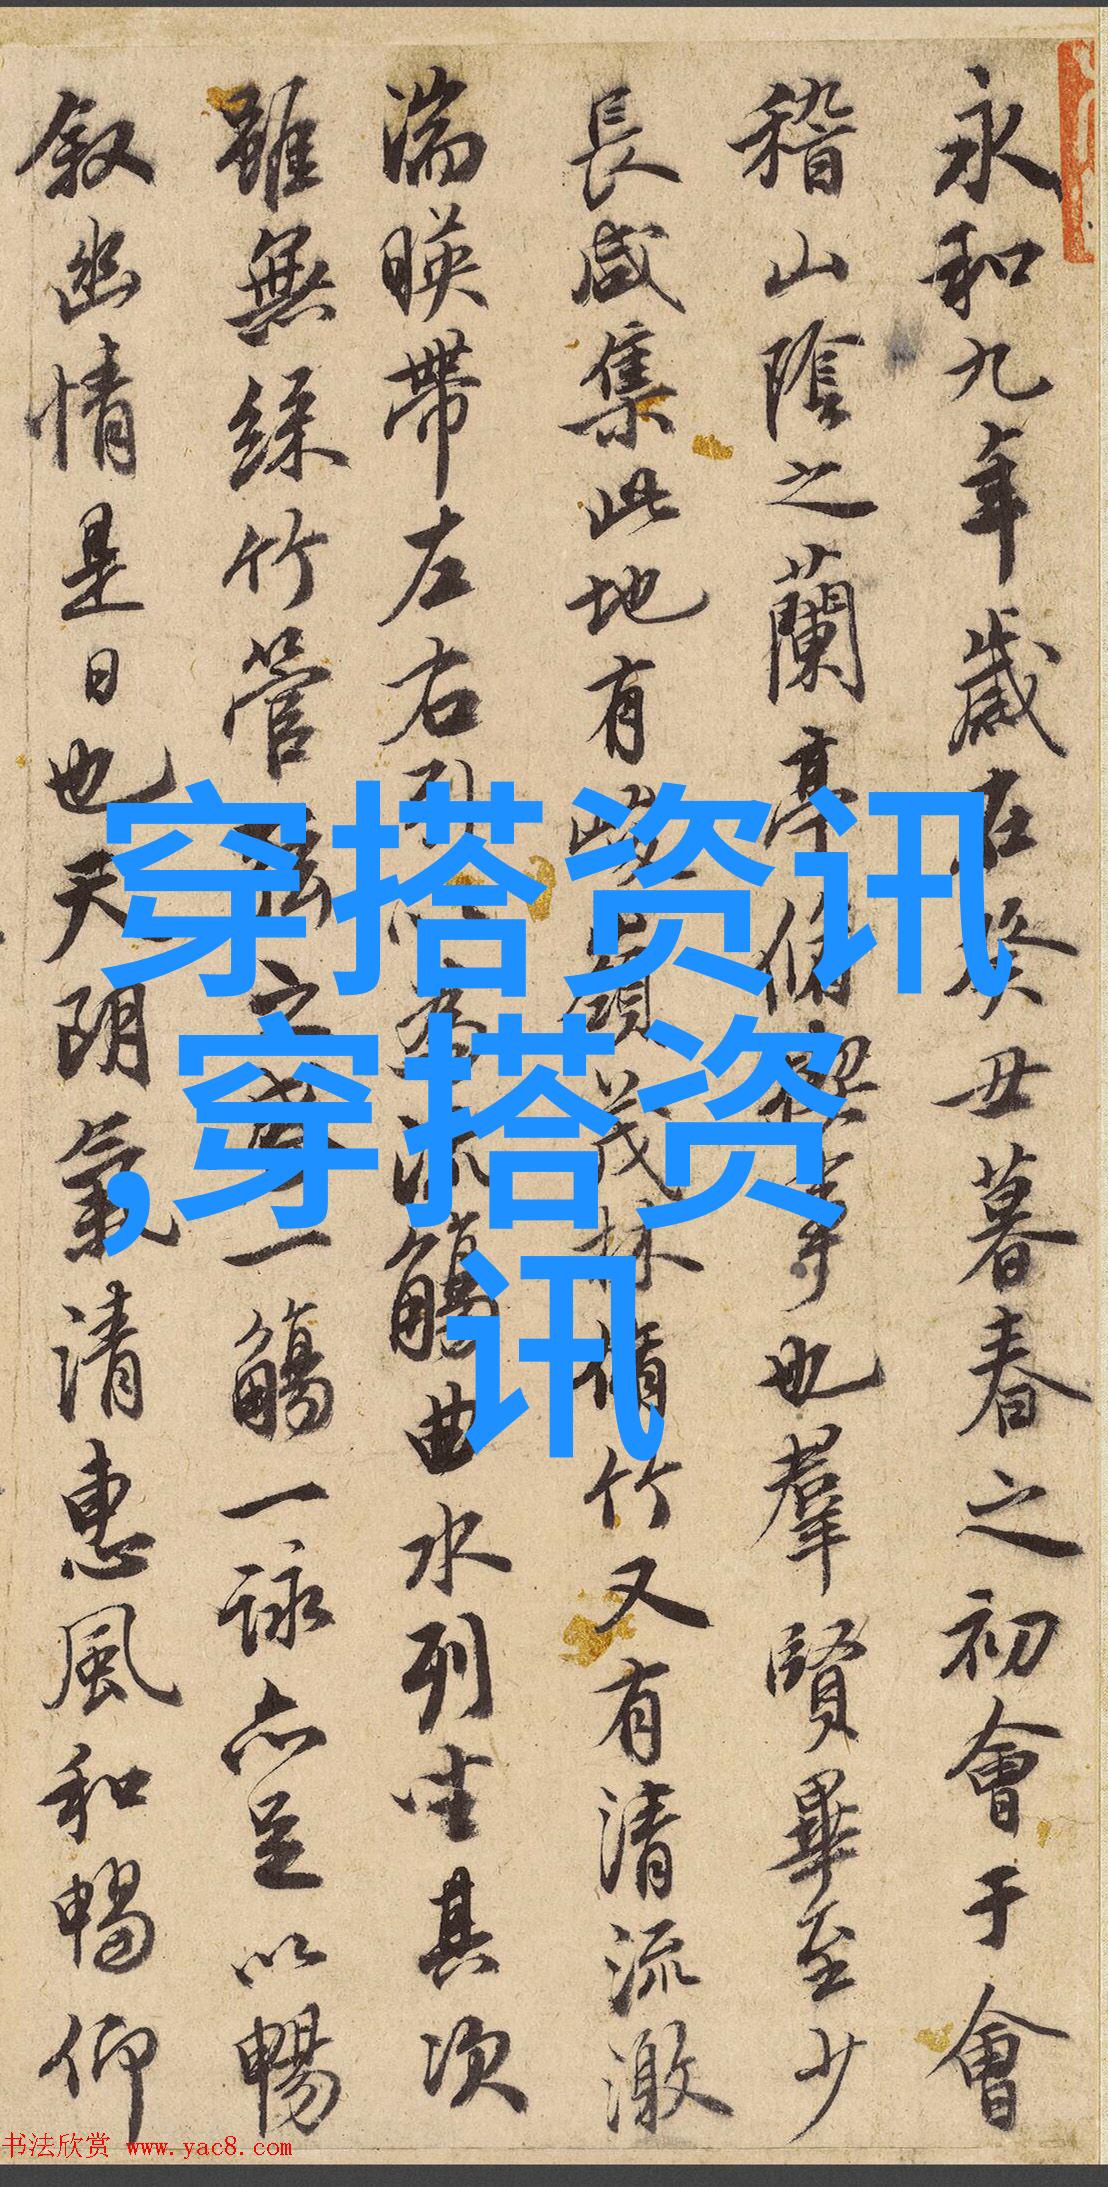 永和九年歲在癸丑暮春之初會于會
稽山陰之蘭亭脩禊事也羣賢畢至少
長咸集此地有峻領茂林脩竹又有清流激
湍暎帶左右引以為流觴曲水列坐其次
雖無絲竹管弦之盛一觴一詠亦足以暢
叙幽情是日也天朗氣清惠風和暢仰
穿搭资讯
,穿搭资
讯
书法欣赏 www.yac8.com